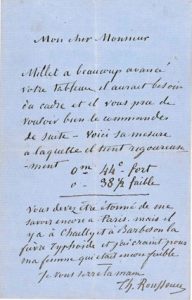 Mon cher Monsieur
Millet a beaucoup avancé
votre tableau, il aurait besoin
du cadre et il vous prie de
vouloir bien le commander
de suite - Voici sa mesure
à laquelle il tient rigoureuse-
ment
0m 44c fort
0 - 38 1/2 faible
Vous devez être étonné de me
savoir encore à Paris. mais il
y a à Chailly et à Barbison la
fièvre typhoïde et j'ai craint pour
ma femme qui était encore faible.
Je vous serre la main
Th. Rousseau